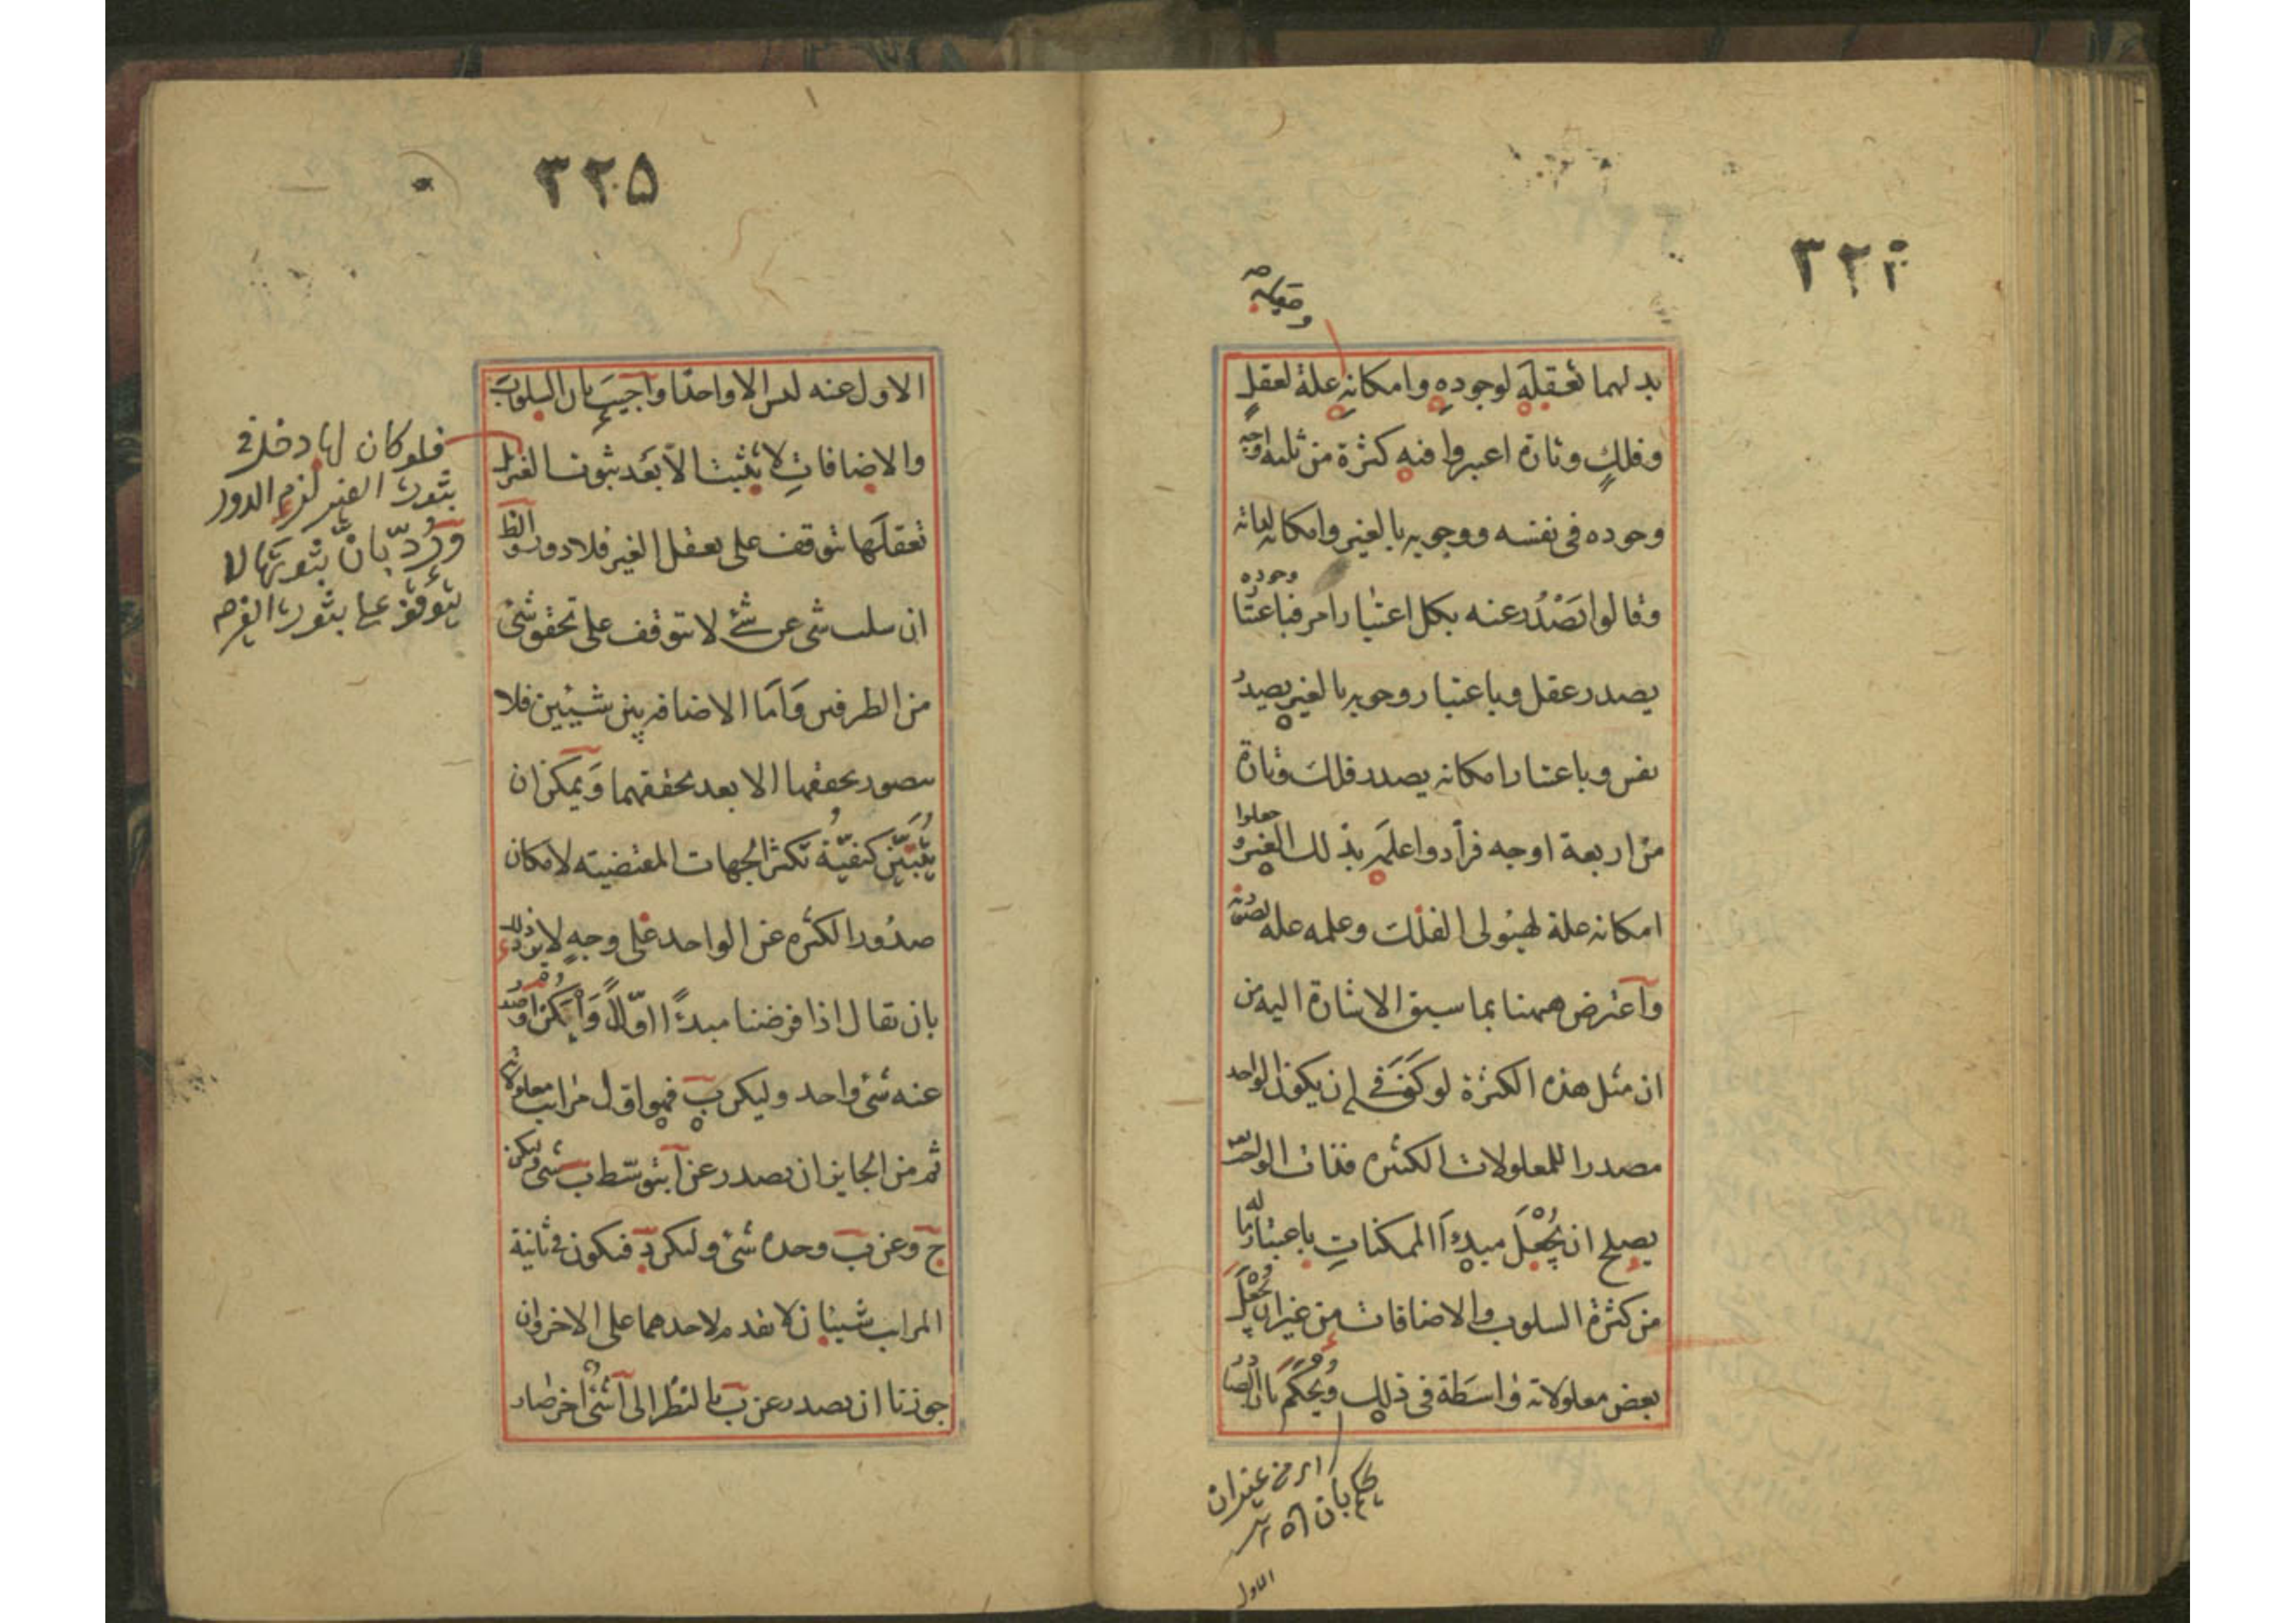 ٣٢٤
وتعقله
بدلهما تعقله لوجوده وامكانه علة لعقل
وفلك وتارة اعتبروا فيه كثرة من ثلثة اوجه
وجوده فى نفسه ووجوبه بالغير وامكانه لذاته
وقالوا يَصْدُر عنه بكل اعتبار امر فباعتبار وجوده
يصدر عقل وباعتبار وجوبه بالغير يصدر
نفس وباعتبار امكانه يصدر فلك وتارة
من اربعة اوجه فزادوا علمه بذلك الغير جعلوا
امكانه علة لهيولى الفلك وعلمه علة لصورته
وآعترض ههنا بما سبق الاشارة اليه من
ان مثل هذه الكثرة لو كَفَى فى ان يكون الواحد
مصدرا للمعلولات الكثيره فذات الواجب تعه
يصلح ان يُجْعَلَ مبدءًا للممكناتِ باعتبار ما له
من كثرة السلوب والاضافات من غير ان يجعل
بعض معلولاته واسَطة فى ذلك ويُحكَم بان الصادر
اى من غير ان
يحكم بان
الاول
٣٢٥
الاول عنه ليس الا واحدًا وآجيبَ بان السلوبَ
والاضافاتِ لا يثبت الاّ بَعْد ثبوت الغير بل
تعقلَها يتوقف على تعقل الغير فلا دور والظ
ان سلب شى عن شئ لا يتوقف على تحقق شئ
من الطرفين وَاَمّا الاضافه بين شيئين فلا
يتصور تحققها الا بعد تحققهما وَيمكن ان
يُبَيَّن كيفيّة تكثر الجهات المقتضيته لامكان
صدُور الكثره عن الواحد على وجهٍ لا يرد ذلك
بان يقال اذا فرضنا مبدءًا اوّلاً وَلْيَكن آ وصدر
عنه شئ واحد وليكن بَ فهو اوّل مراتب معلولاته
ثم من الجايز ان يصدر عن آ بتوسّط بَ شئ وليكن
جَ وعن بَ وحده شئ وليكن دَ فيكون فى ثانية
المراتب شيئان لا تقدم لاحدهما على الاخر وان
جوزنا ان يصدر عن بَ بالنظر الى آ شئ اخر صار
فلو كان لها دخل فى
ثبوت الغير لزم الدور
وَرُدّ بانّ ثبوتها لا
يتوقف على ثبوت الغير